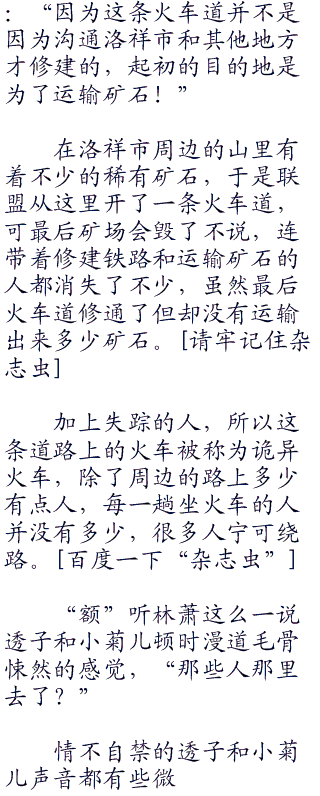 ：“因为这条火车道并不是
因为沟通洛祥市和其他地方
才修建的，起初的目的地是
为了运输矿石！”
在洛祥市周边的山里有
着不少的稀有矿石，于是联
盟从这里开了一条火车道，
可最后矿场会毁了不说，连
带着修建铁路和运输矿石的
人都消失了不少，虽然最后
火车道修通了但却没有运输
出来多少矿石。[请牢记住杂
志虫]
加上失踪的人，所以这
条道路上的火车被称为诡异
火车，除了周边的路上多少
有点人，每一趟坐火车的人
并没有多少，很多人宁可绕
路。[百度一下“杂志虫”]
“额”听林萧这么一说
透子和小菊儿顿时漫道毛骨
悚然的感觉，“那些人那里
去了？”
情不自禁的透子和小菊
儿声音都有些微